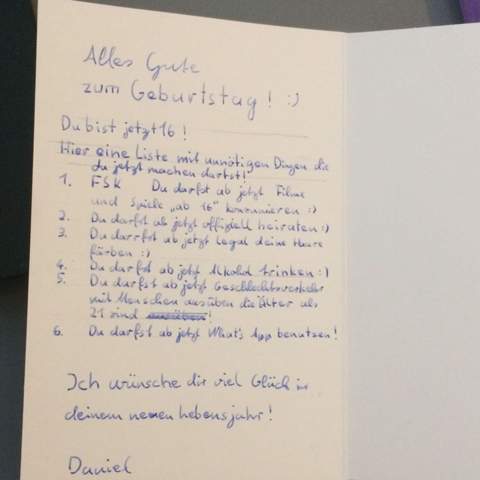 Alles Gute
zum Geburtstag! :)
Du bist jetzt 16!
Hier eine Liste mit unnötigen Dingen die
du jetzt machen darfst!
1. FSK Du darfst ab jetzt Filme
und Spiele „ab 16" konsumieren :)
2. Du darfst ab jetzt offiziell heiraten :)
3. Du darrfst ab jetzt legal deine Haare
färben :)
4. Du darfst ab jetzt Alkohol trinken :)
5. Du darfst ab jetzt Geschlechtsverkehr
mit Menschen ausüben die älter als
21 sind ausüben!
6. Du darfst ab jetzt What's App benutzen!
Ich wünsche dir viel Glück in
deinem neuen Lebensjahr!
Daniel